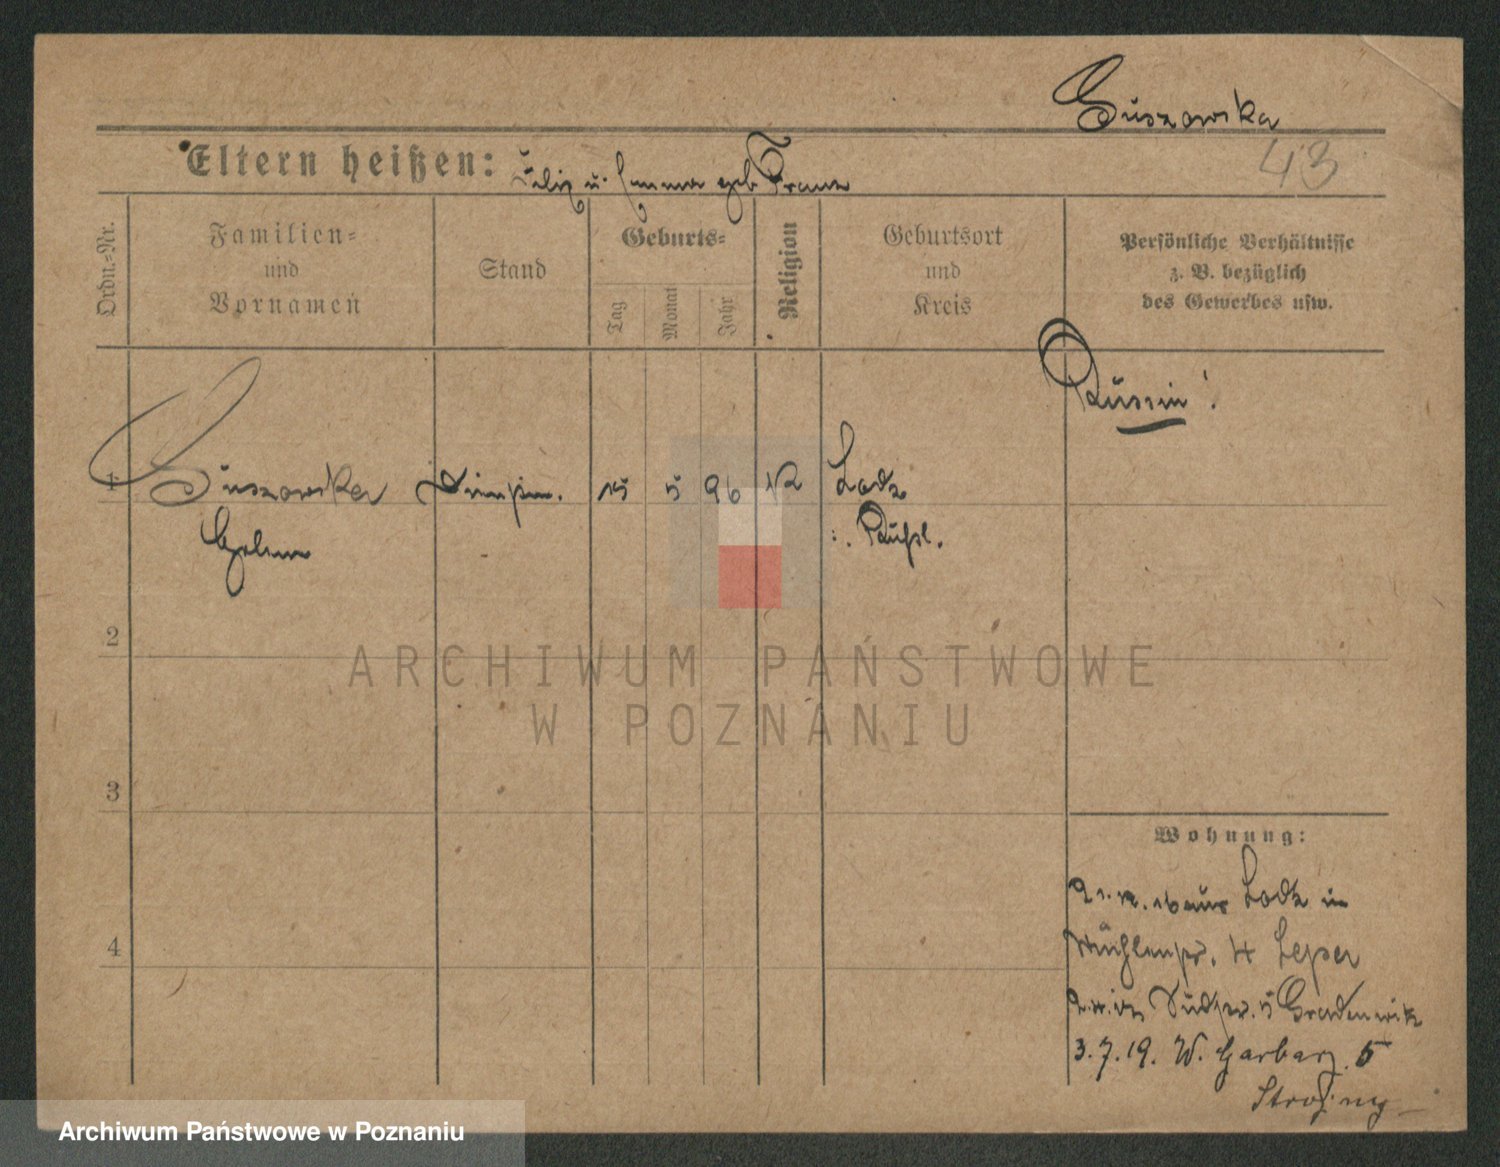 Guszowska
43
Eltern heißen: Felix u. Emma geb Franz
Ordn.-Nr.
Familien-
und
Vornamen
Stand
Geburts-
Tag
Monat
Jahr
Religion
Geburtsort
und
Kreis
Persönliche Verhältnisse
z. B. bezüglich
des Gewerbes usw.
Russin!
1 Guszowska 15 5 96 K Lodz
Helene i. Rußl.
2
ARCHIWUM PAŃSTWOWE
W POZNANIU
3
Wohnung:
aus Lodz in
4
Mühlenstr. 4
5
3.7.19. W. Garbary 5
Archiwum Państwowe w Poznaniu